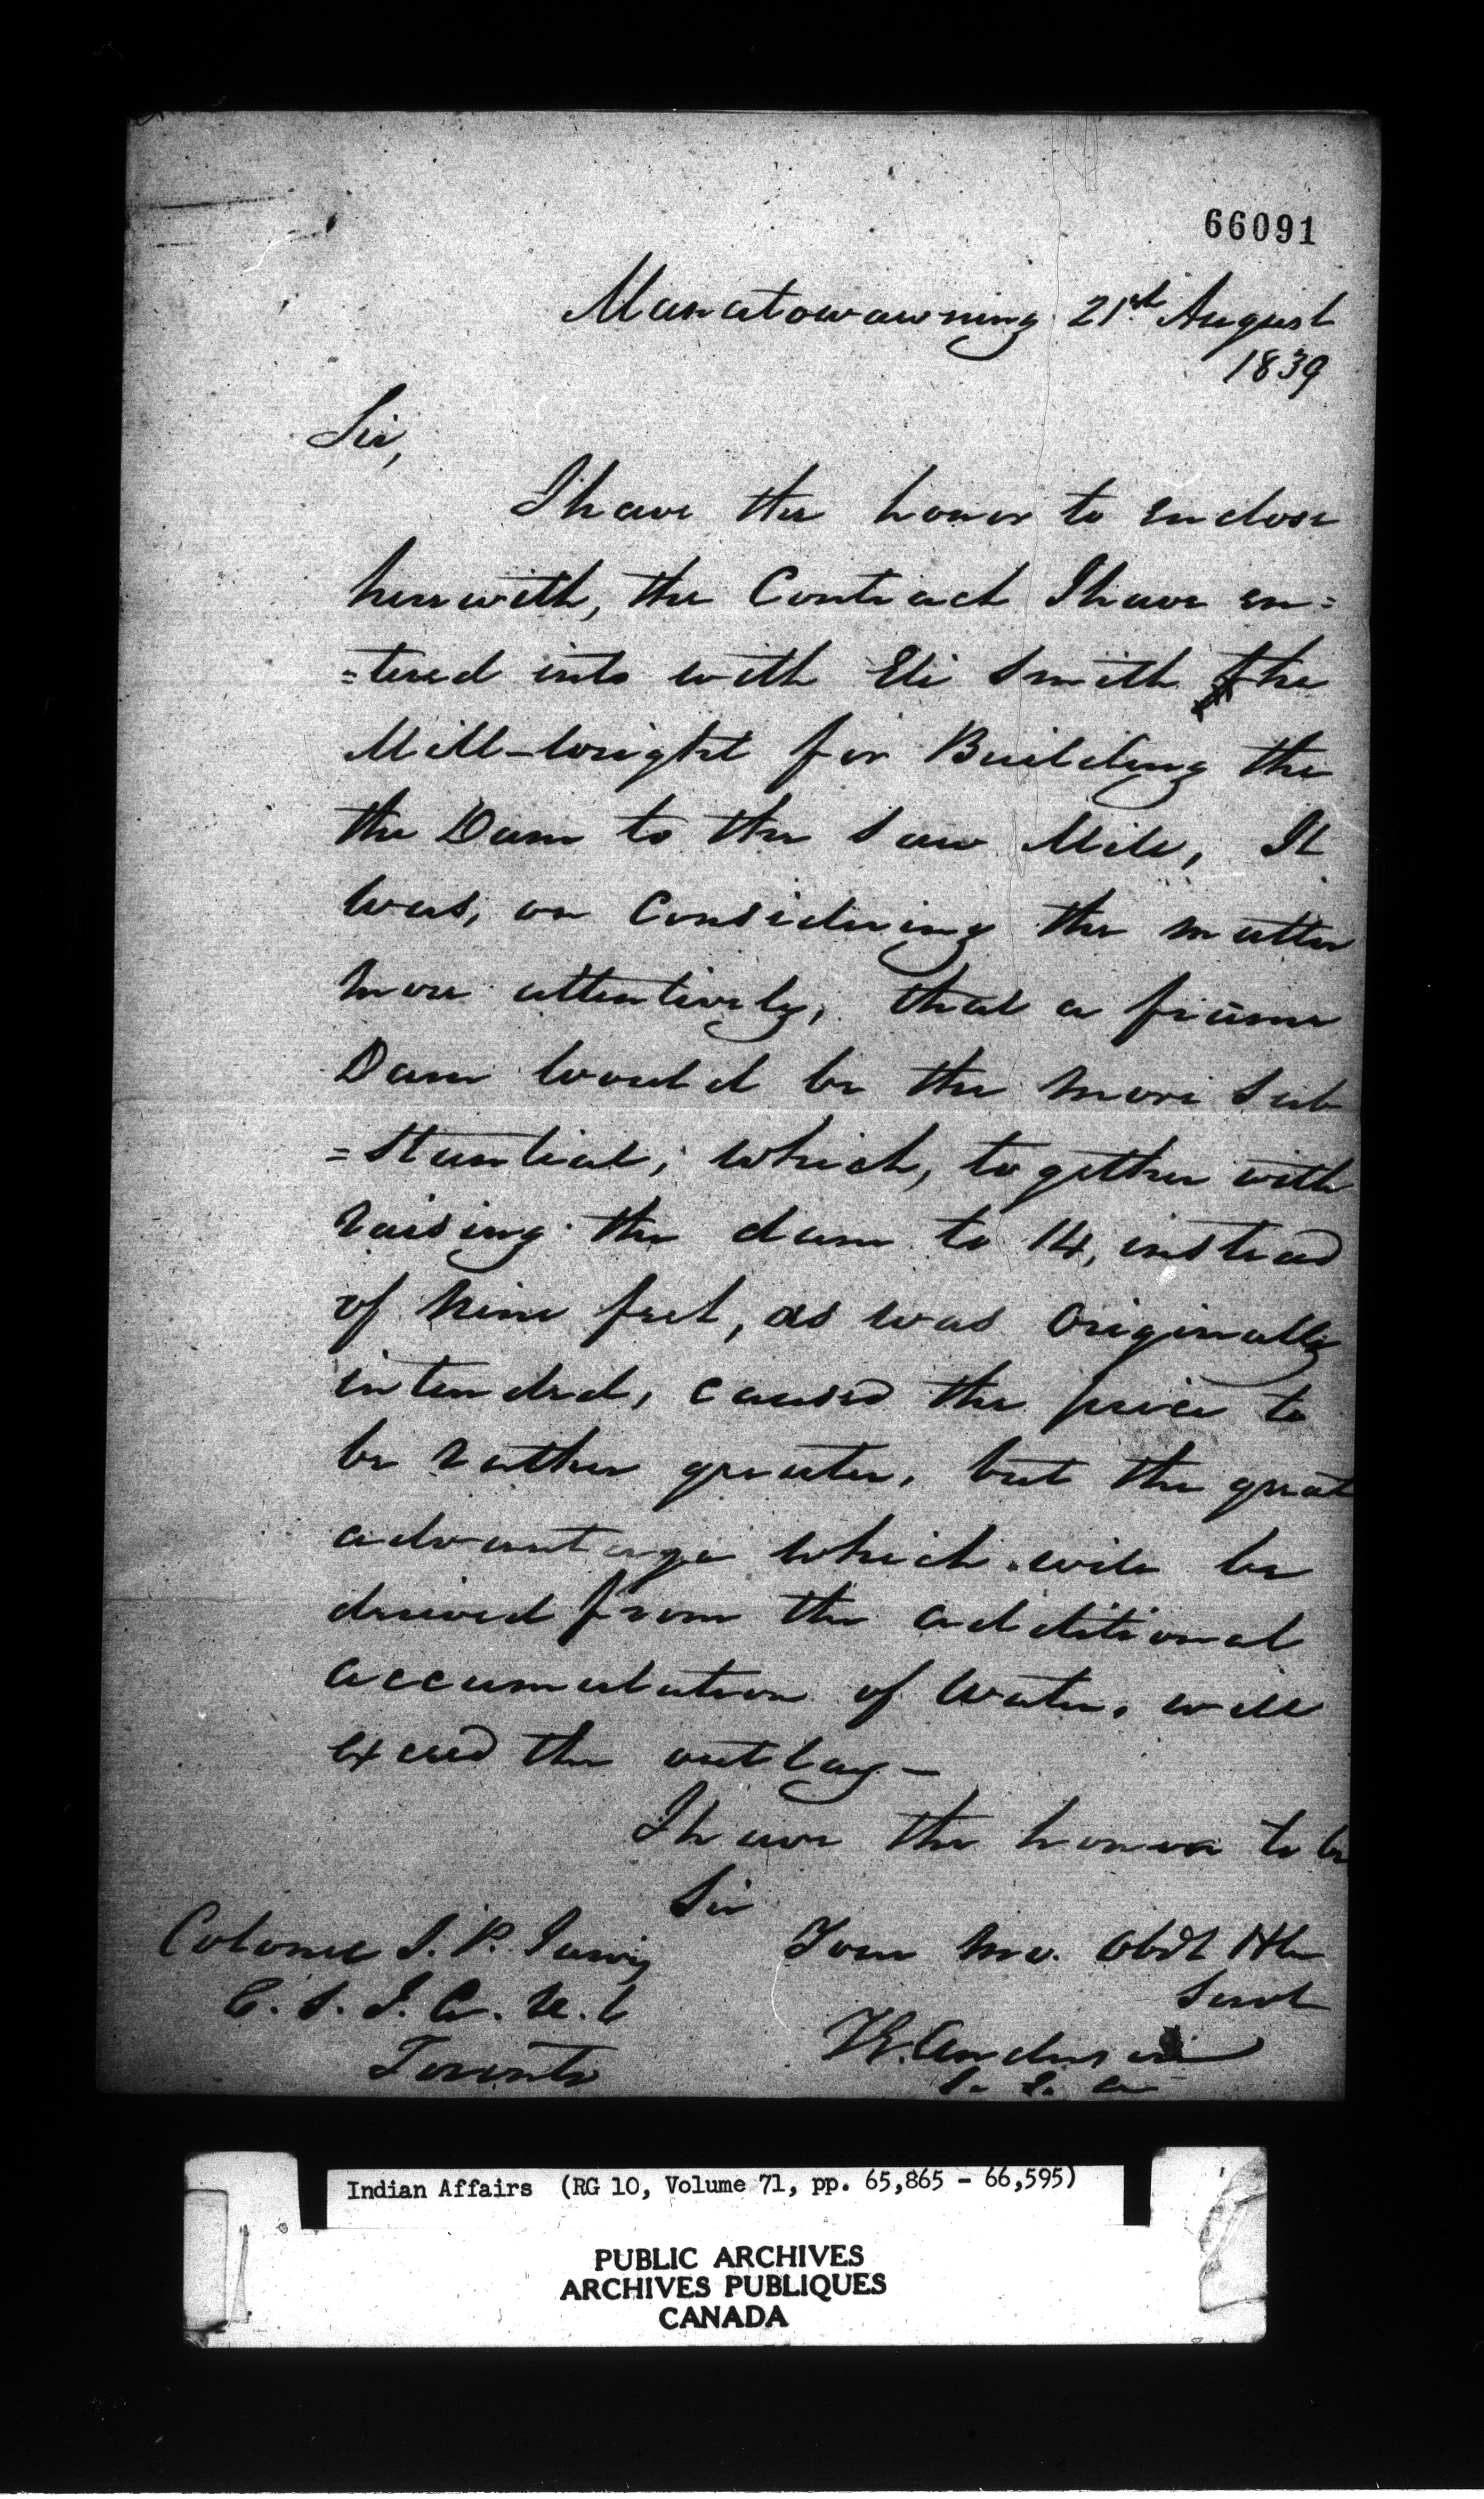 66091
Manatowawning 21st August
1839
Sir,
I have the honor to enclose
herewith, the Contract I have en=
=tered into with Eli Smith the
Mill-wright for Building the
the Dam to the Saw Mill, It
was, on Considering the matter
more attentively, that a frame
Dam would be the more sub
=stantial, which, together with
raising the dam to 14, instead
of nine feet, as was originally
intended, caused the price to
be rather greater, but the great
advantage which will be
derived from the additional
accumulation of water, will
exceed the outlay—
I have the honor to be
Sir
Colonel S. P. Jarvis
Your Mo. Obdt Hble
C. S. I. A. U. C
Servt
Toronto
T G. Anderson
S. I. A
Indian Affairs (RG 10, Volume 71, pp. 65,865 - 66,595)
PUBLIC ARCHIVES
ARCHIVES PUBLIQUES
CANADA